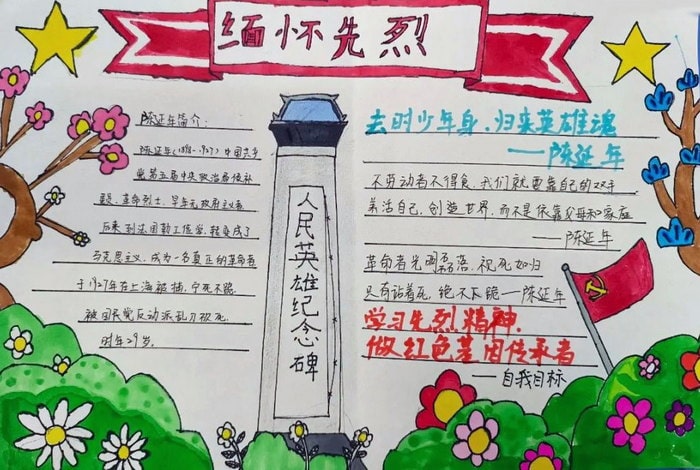 缅怀先烈
陈延年简介:
陈延年(1898-1927) 中国共产
党第五届中央政治局候补
委员、革命烈士、早年无政府主义者
后来到法国勤工俭学,转变成了
马克思主义,成为一名真正的革命者
于1927年在上海被捕,宁死不跪
被国民党反动派乱刀砍死
时年29岁。
人民英雄纪念碑
去时少年身,归来英雄魂
——陈延年
不劳动者不得食,我们就要靠自己的双手
养活自己,创造世界,而不是依靠父母和家庭
——陈延年
革命者光明磊落,视死如归
只有站着死,绝不长跪——陈延年
学习先烈精神,
做红色基因传承者
——自我目标